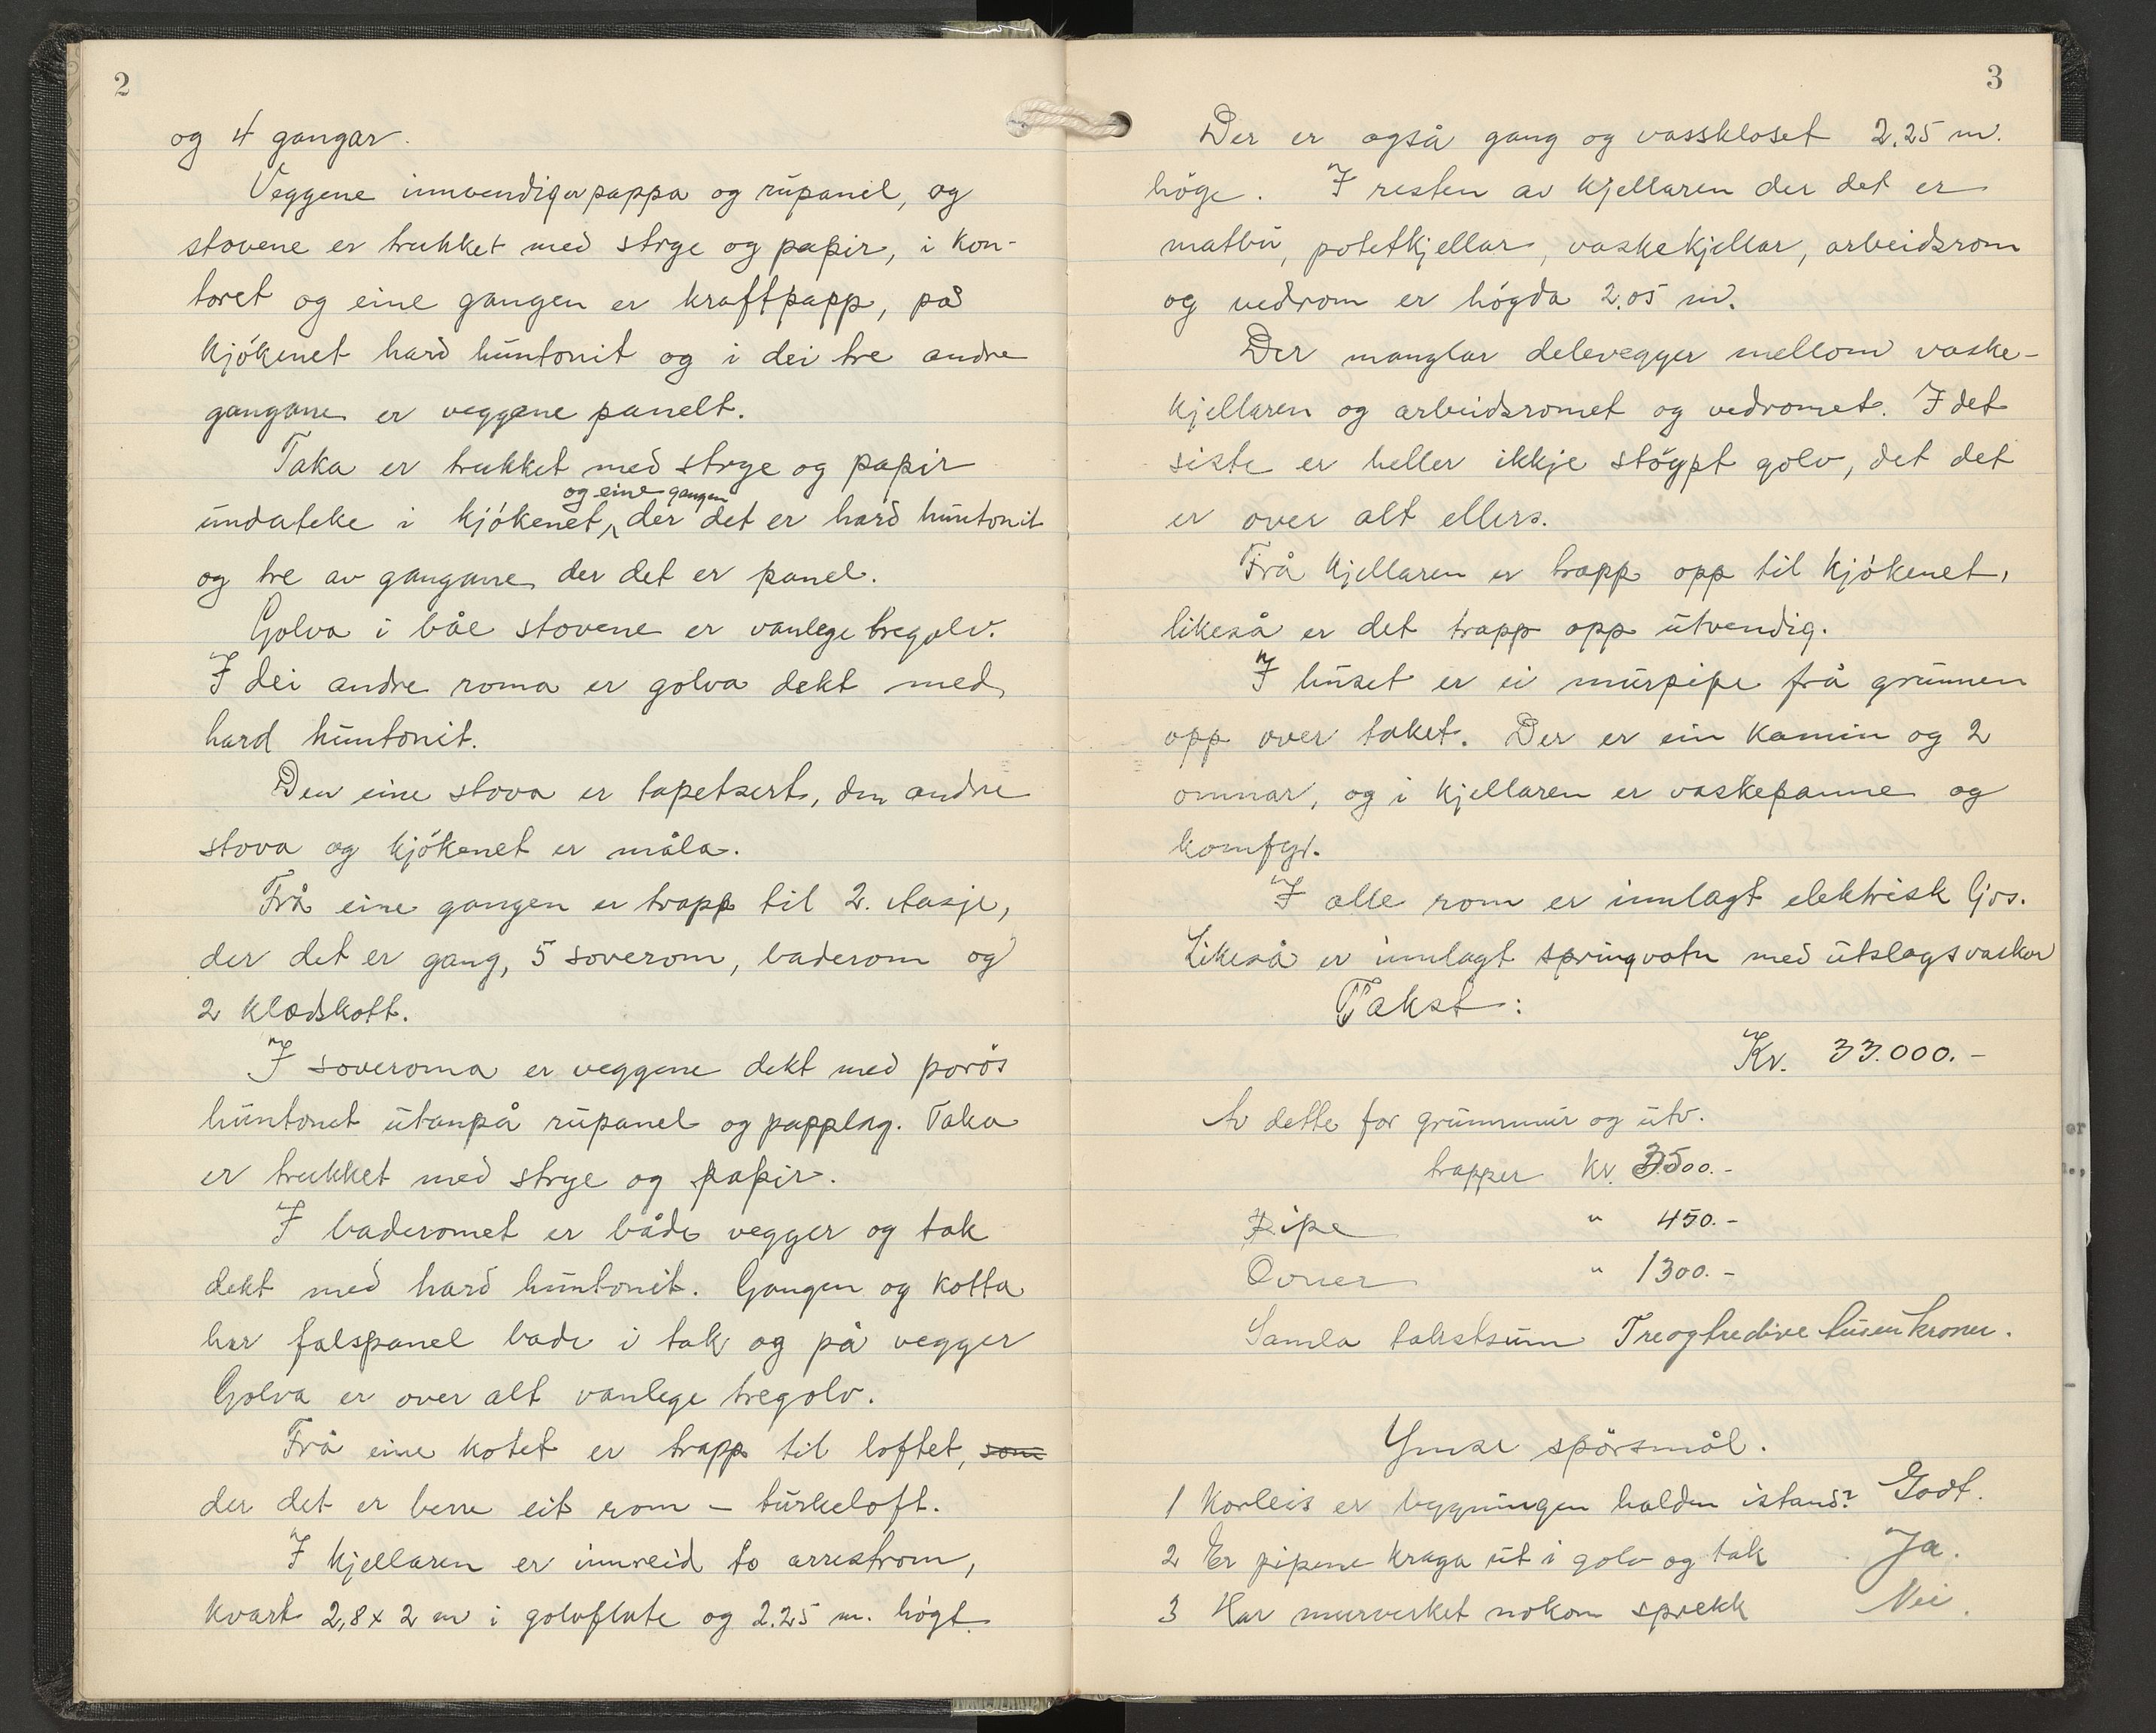 2
og 4 gangar.
Veggene innvendig er pappa og rupanel, og
stovene er trukket med strge og papir, i kon-
toret og eine gangen er kraftpapp, på
kjökenet hard huntonit og i dei tre andre
gangane er veggene panelt.
Taka er trukket med strge og papir
og eine gangen
undateke i kjökenet, der det er hard huntonit
og tre av gangane der det er panel.
Golva i båe stovene er vanlege tregolv.
I dei andre roma er golva dekt med
hard huntonit.
Den eine stova er tapetsert, den andre
stova og kjökenet er måla.
Frå eine gangen er trapp til 2. etasje,
der det er gang, 5 soverom, baderom og
2 klædskott.
I soveroma er veggene dekt med porös
huntonet utanpå rupanel og papplag. Taka
er trukket med strye og papir.
I baderomet er både vegger og tak
dekt med hard huntonit. Gangen og kotta
har falspanel bade i tak og på vegger
Golva er over alt vanlege tregolv.
Frå eine kotet er trapp til loftet, som
der det er berre eit rom – turkeloft.
I kjellaren er innreid to arrestrom,
kvart 2,8 x 2 m i golvflate og 2.25 m. högt.
3
Der er også gang og vasskloset 2.25 m.
höge. I resten av kjellaren der det er
matbu, potetkjellar, vaskekjellar, arbeidsrom
og vedrom er högda 2.05 m.
Der manglar delevegger mellom vaske-
kjellaren og arbeidsromet og vedromet. I det
siste er heller ikkje stöypt golv, det det
er over alt ellers.
Frå kjellaren er trapp opp til kjökenet,
likeså er det trapp opp utvendig.
I huset er ei murpipe frå grunnen
opp over taket. Der er ein kamin og 2
omnar, og i kjellaren er vaskepanne og
komfyr.
I alle rom er innlagt elektrisk ljos.
Likeså er innlagt springvatn med utslagsvaskar
Takst:
Kr. 33.000.-
Av dette for grunnmur og utv.
trapper kr. 3500.-
Pipe " 450.-
Ovner " 1300.-
Samla takstsum Treogtredive tusen kroner.
Ymse spörsmål.
1 Korleis er bygningen halden istand? Godt.
2 Er pipene kraga ut i golv og tak Ja.
3 Har murverket nokon sprekk Nei.
er